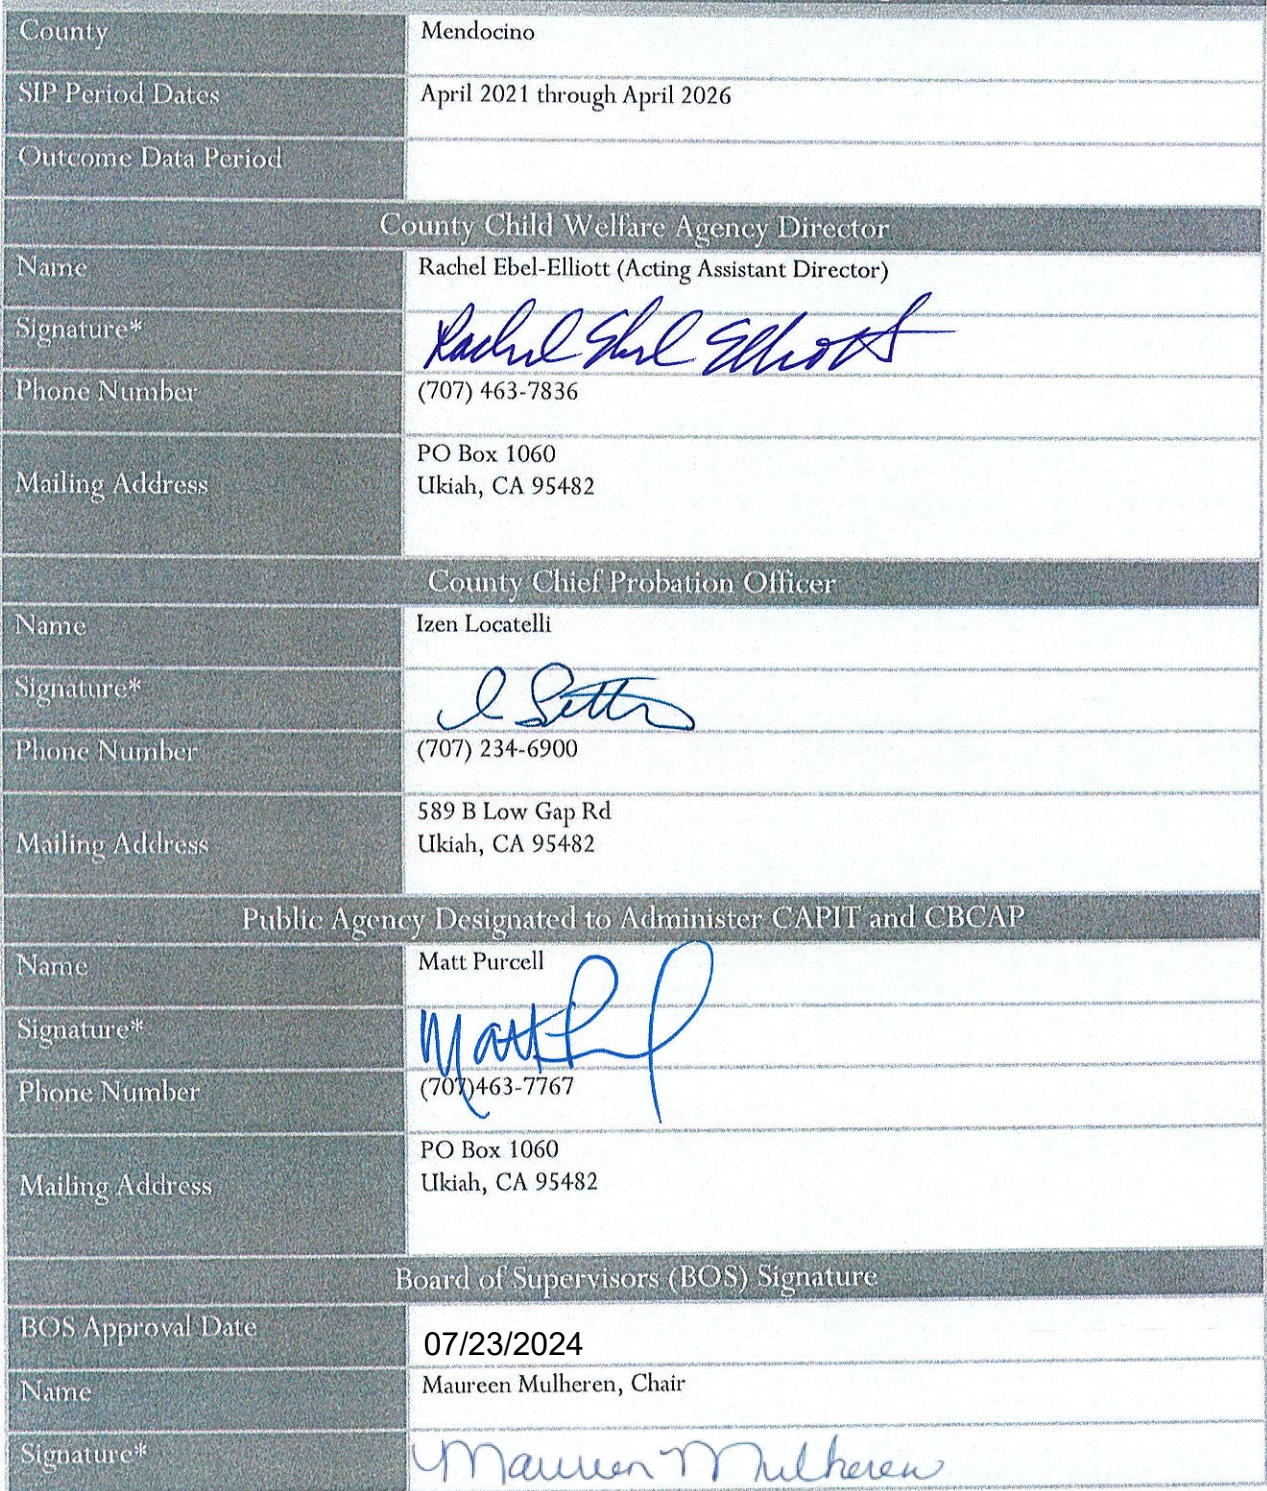 County Mendocino
SIP Period Dates April 2021 through April 2026
Outcome Data Period
County Child Welfare Agency Director
Name Rachel Ebel-Elliott (Acting Assistant Director)
Signature* Rachel Ebel Elliott
Phone Number (707) 463-7836
PO Box 1060
Mailing Address Ukiah, CA 95482
County Chief Probation Officer
Name Izen Locatelli
Signature*
Phone Number (707) 234-6900
589 B Low Gap Rd
Mailing Address Ukiah, CA 95482
Public Agency Designated to Administer CAPIT and CBCAP
Name Matt Purcell
Signature* Matt
Phone Number (707)463-7767
PO Box 1060
Mailing Address Ukiah, CA 95482
Board of Supervisors (BOS) Signature
BOS Approval Date 07/23/2024
Name Maureen Mulheren, Chair
Signature* Maureen Mulheren